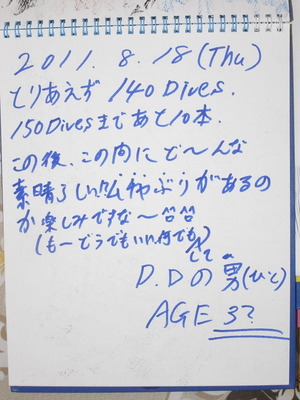 2011. 8. 18 (Thu)
とりあえず 140 Dives.
150 Divesまであと10本.
この後、この向にど〜んな
素晴らしい があるの
か楽しみですな〜
(もーどうでもいい何でも)
して
D.Dの男(ひと)
AGE 3?